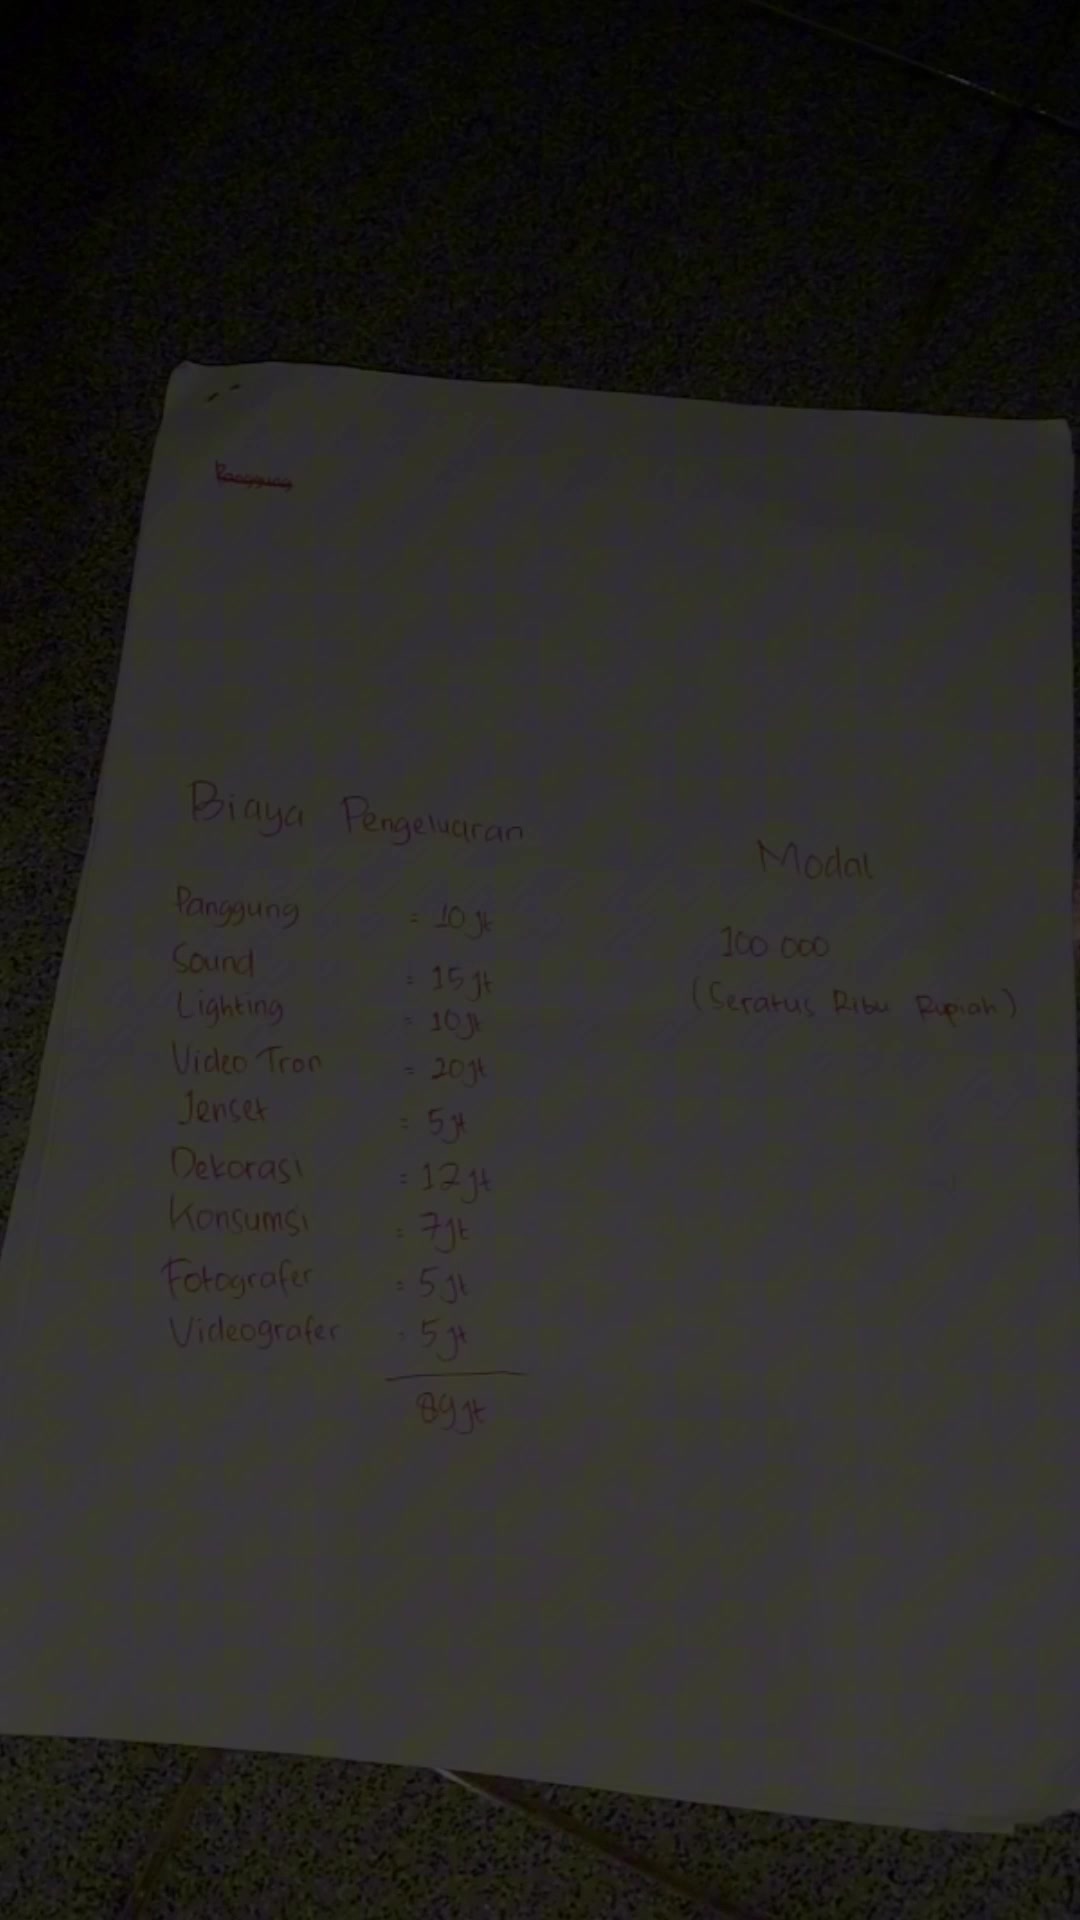 Panggung
Biaya Pengeluaran
Panggung = 10 jt
Sound = 15 jt
Lighting = 10 jt
Video Tron = 20 jt
Jenset = 5 jt
Dekorasi = 12 jt
Konsumsi = 7 jt
Fotografer = 5 jt
Videografer = 5 jt
89 jt
Modal
100 000
(Seratus Ribu Rupiah)